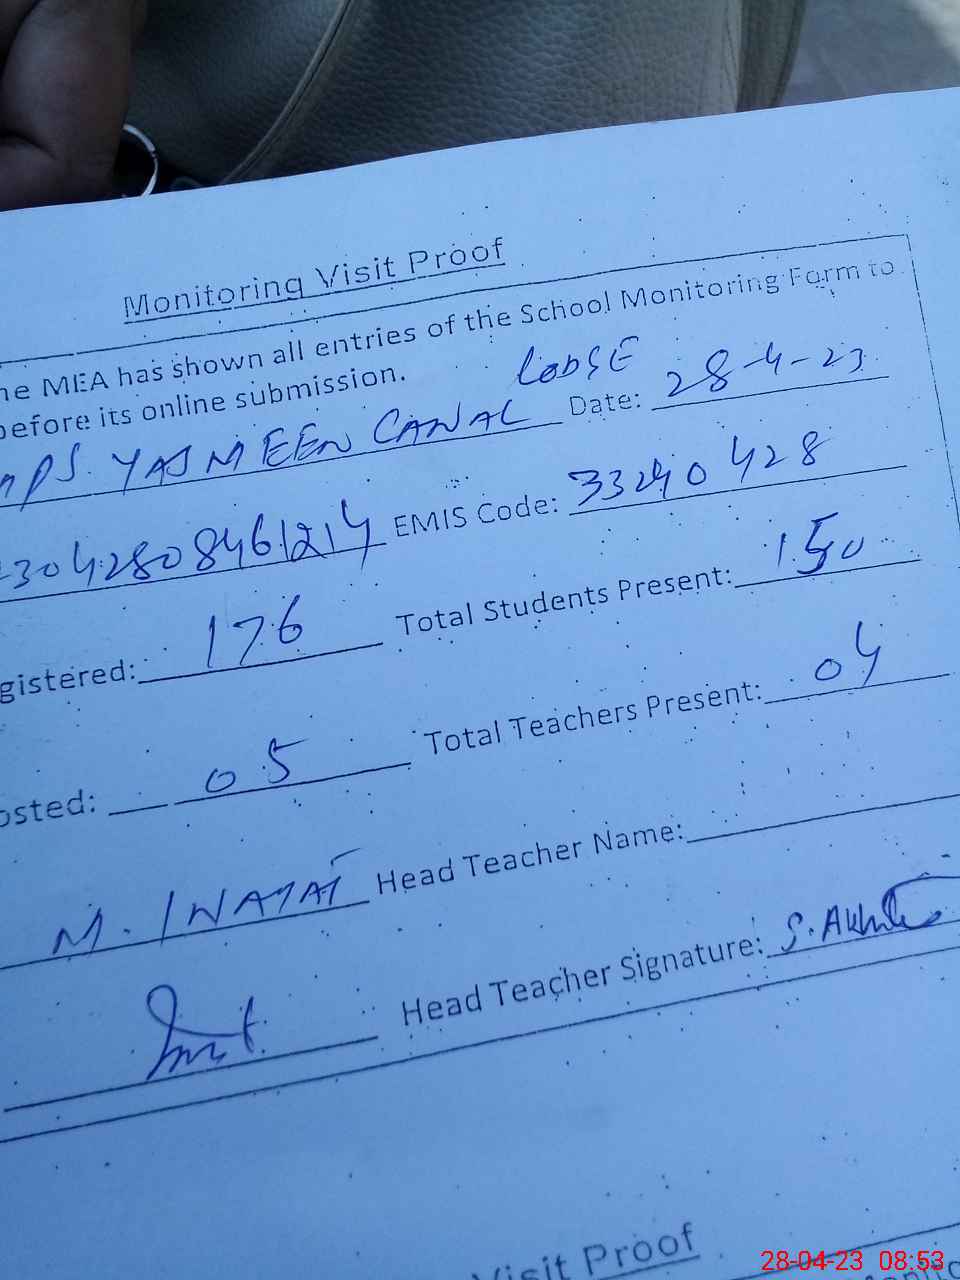 Monitoring Visit Proof
he MEA has shown all entries of the School Monitoring Form to
before its online submission.
LODGE
MPS YASMEEN CANAL Date: 28-4-23
3042808461214 EMIS Code: 33240428
gistered: 176 Total Students Present: 150
osted: 05 Total Teachers Present: 04
M. INAYAT Head Teacher Name:
Head Teacher Signature: S. Akhtar
Visit Proof
28-04-23 08:53